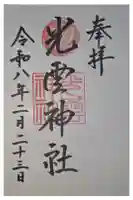 奉拝
光雲神社
令和八年二月二十三日